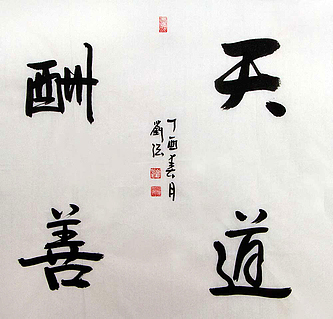 天道
酬善
丁酉春月